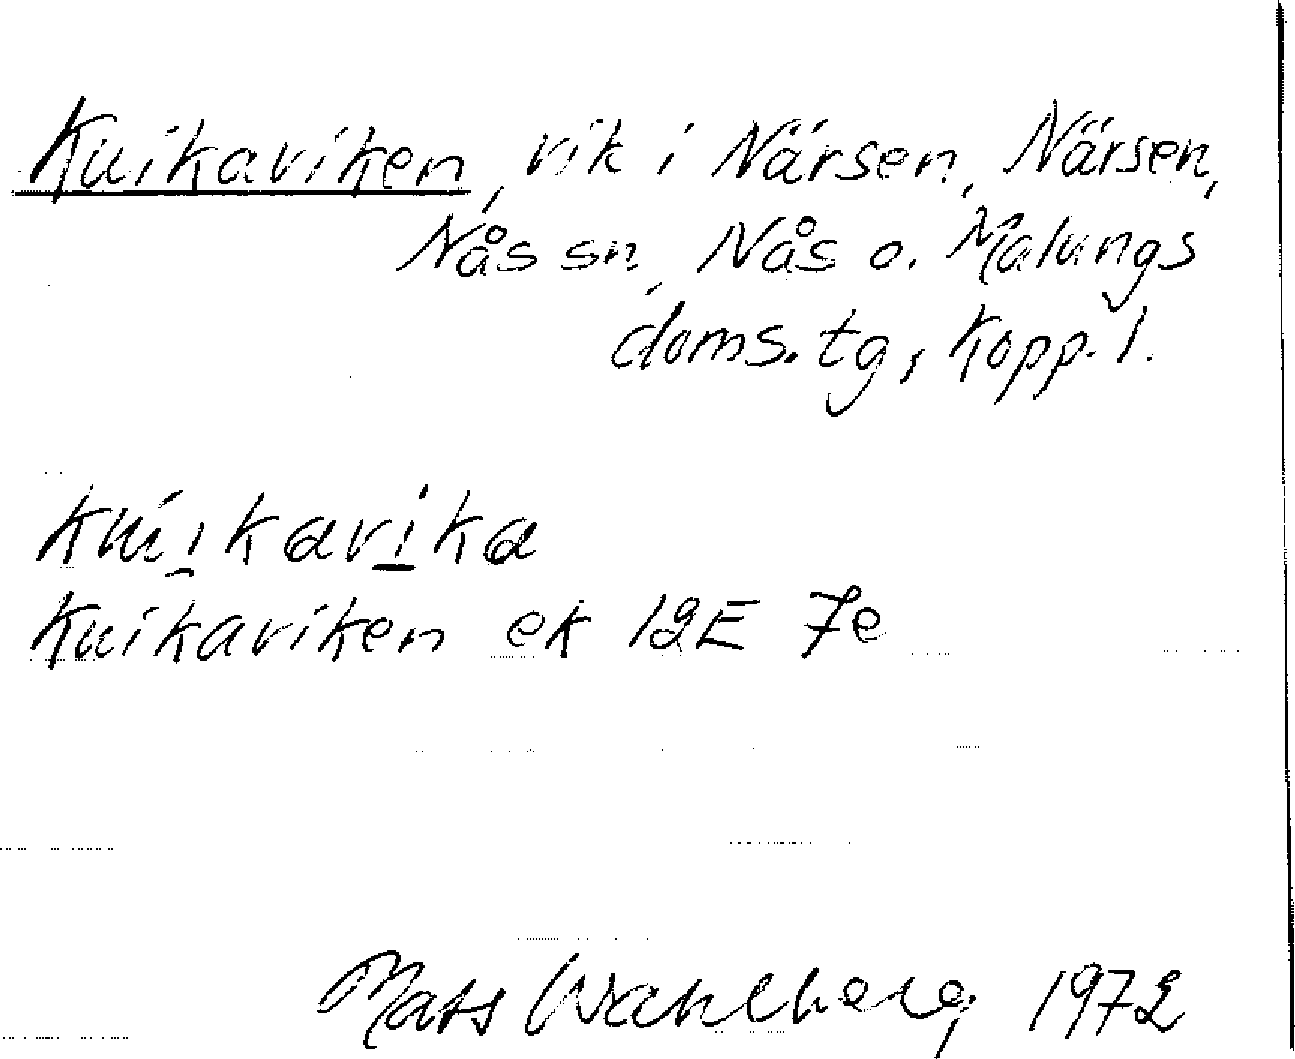 Kuikaviken, vik i Närsen, Närsen,
Nås sn, Nås o. Malungs
doms. tg, Kopp. l.
Kuikaviken ek 12E 7e
Mats Wahlberg 1972